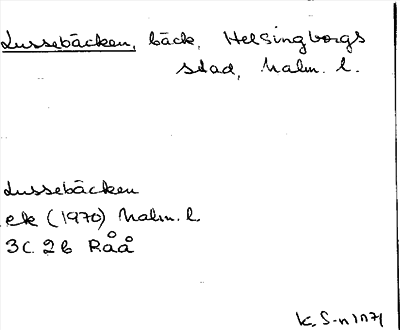 Lussebäcken, bäck, Helsingborgs
stad, Malm. l.
Lussebäcken
ek (1970) Malm. l.
3C 2b Råå
K. S-n 1971